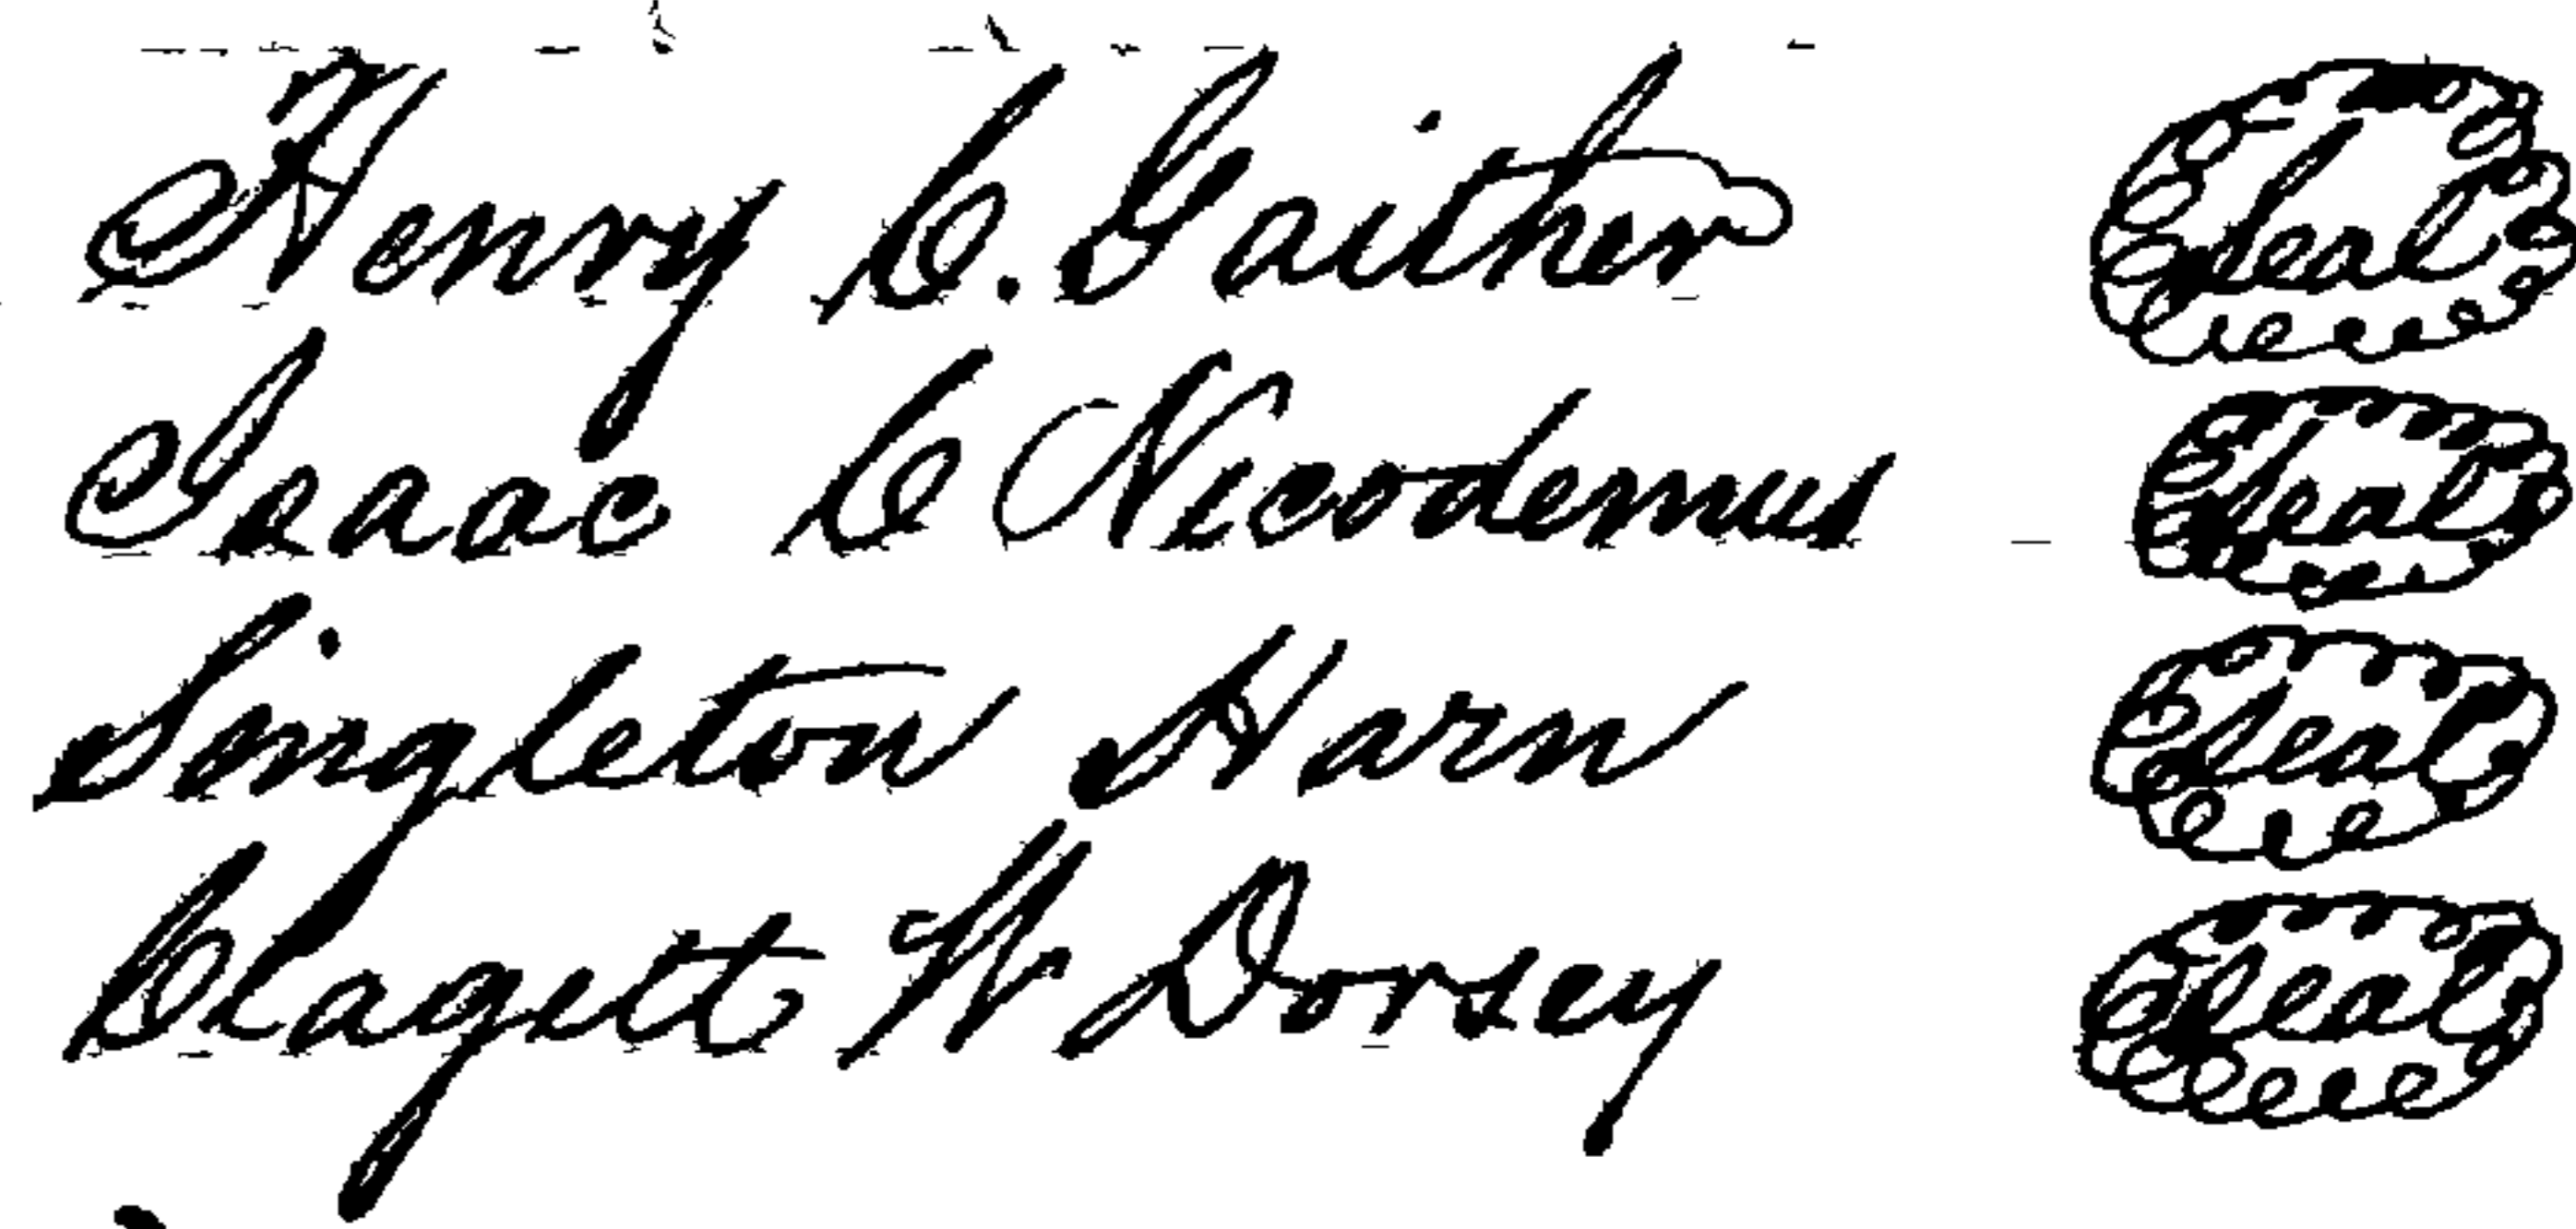 Henry C. Gaither Seal
Isaac C Nicodemus Seal
Singleton Harn Seal
Clagett W Dorsey Seal